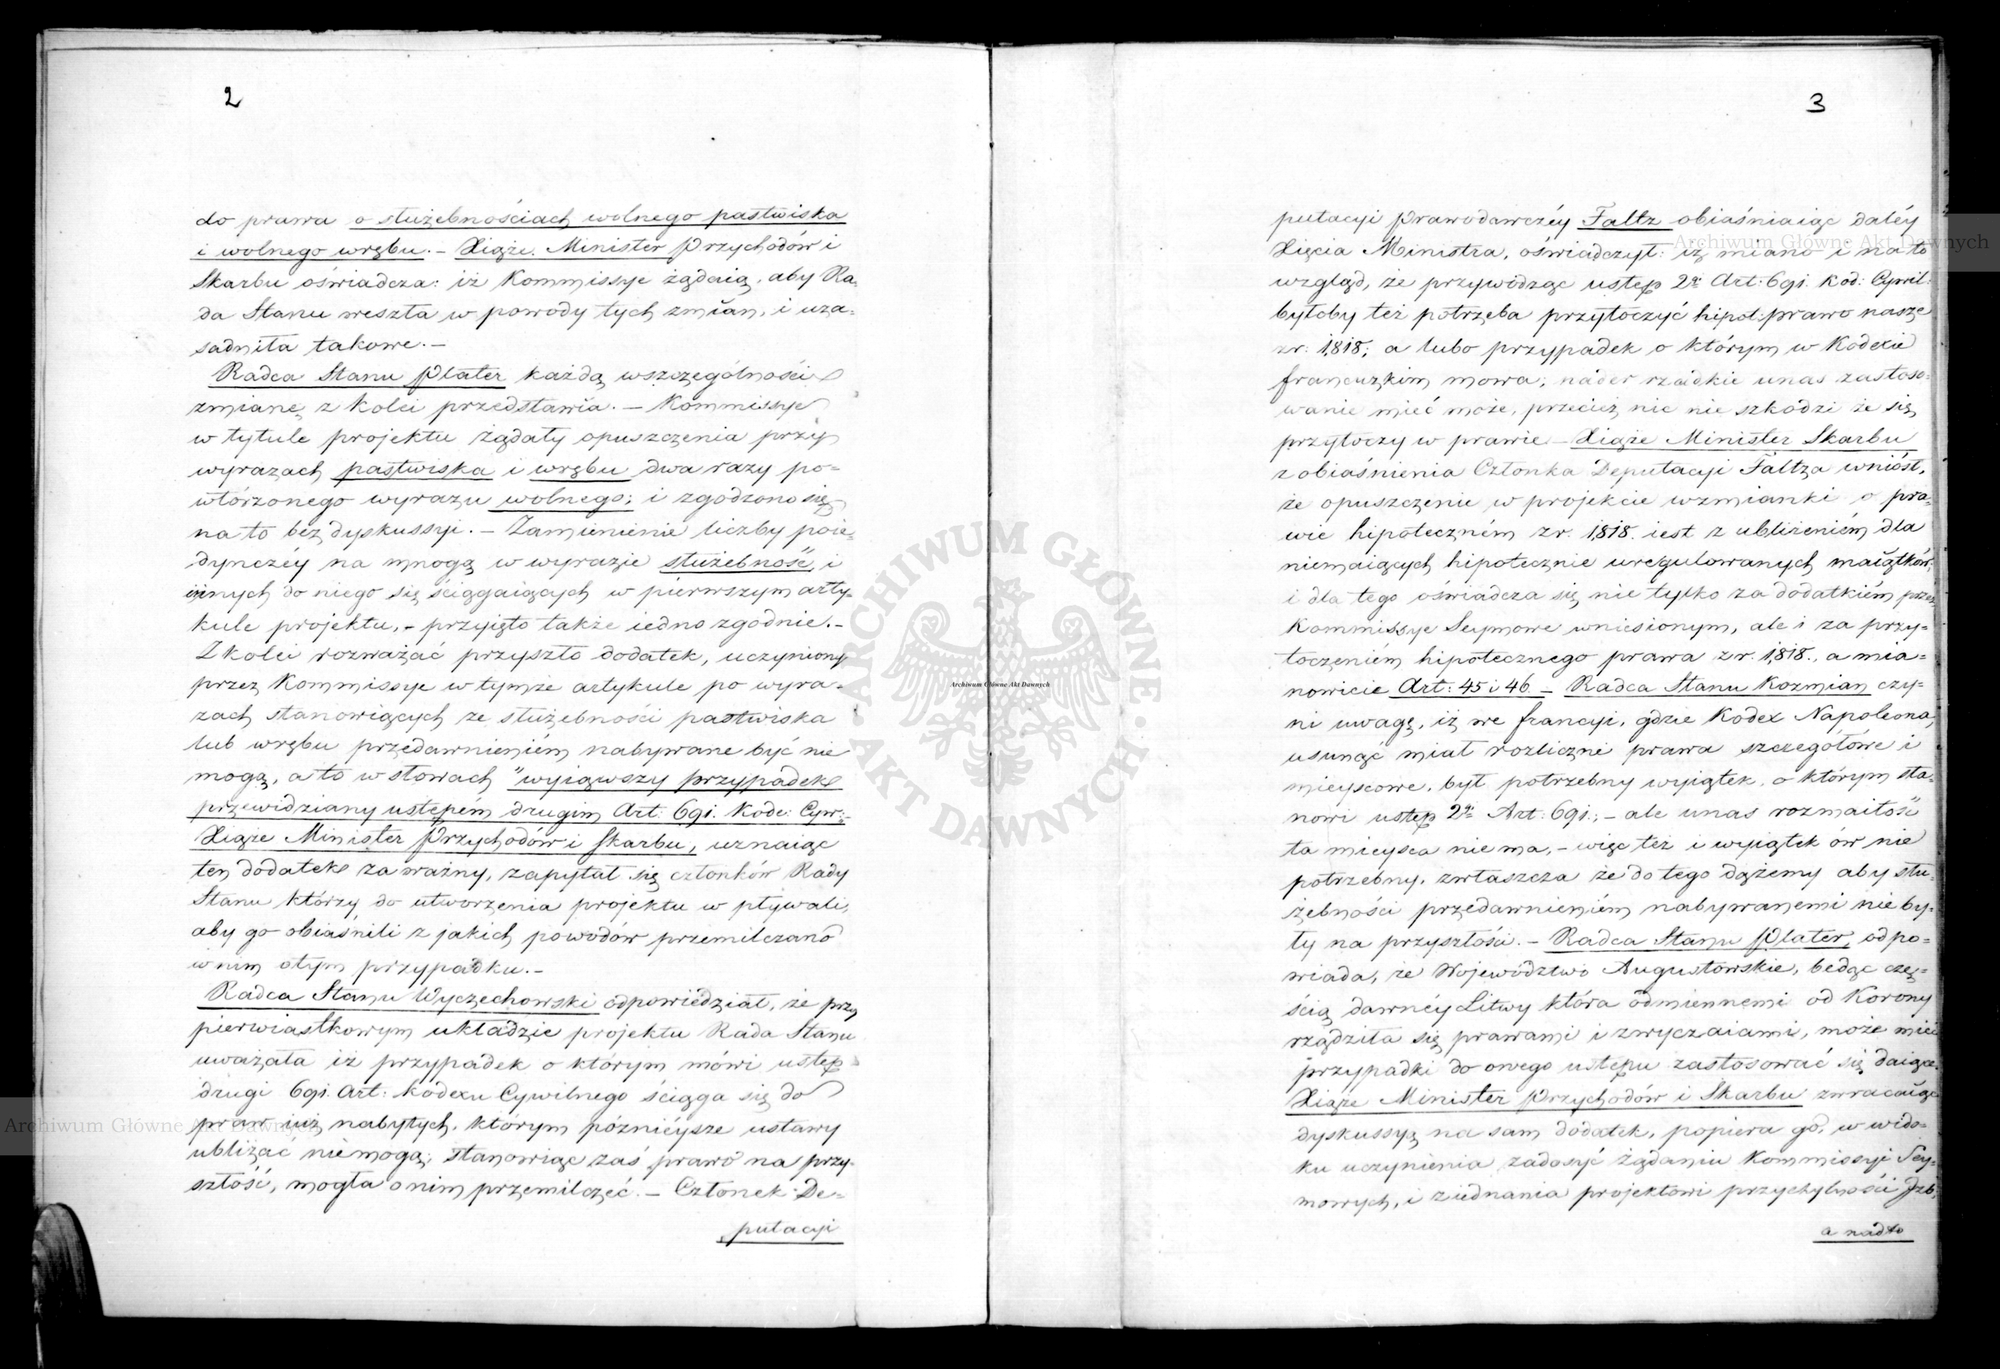 2
do prawa o służebnościach wolnego pastwiska
i wolnego wrębu. – Xiąże Minister Przychodów i
Skarbu oświadcza: iż Kommissye żądaią, aby Ra-
da Stanu weszła w powody tych zmian, i uza-
sadniła takowe. –
Radca Stanu Plater każdą wszczególności
zmianę z kolei przedstawia. – Kommissye
w tytule projektu żądały opuszczenia przy
wyrazach pastwiska i wrębu dwa razy po-
wtórzonego wyrazu wolnego; i zgodzono się
na to bez dyskussyi. – Zamienienie liczby poie-
dynczéy na mnogą w wyrazie służebność, i
innych do niego się ściągaiących w pierwszym arty-
kule projektu, – przyięto także iednozgodnie. –
Z kolei rozważać przyszło dodatek, uczyniony
przez Kommissye w tymże artykule po wyra-
zach stanowiących że służebności pastwiska
lub wrębu przedawnieniém nabywane być nie
mogą, a to w słowach "wyiąwszy przypadek
przewidziany ustępem drugim Art: 691. Kode: Cyw:-
Xiąże Minister Przychodów i Skarbu, uznaiąc
ten dodatek za ważny, zapytał się członków Rady
Stanu którzy do utworzenia projektu wpływali,
aby go obiaśnili z jakich powodów przemilczano
w nim o tym przypadku. –
Radca Stanu Wyczechowski odpowiedział, że przy
pierwiastkowym układzie projektu Rada Stanu
uważała iż przypadek o którym mówi ustęp
drugi 691. Art: Kodexu Cywilnego ściąga się do
praw iuż nabytych, którym późnieysze ustawy
ubliżać niemogą; stanowiąc zaś prawo na przy-
szłość, mogła o nim przemilczeć. – Członek De-
putacyi
3
putacyi Prawodawczéy Faltz obiaśniaiąc daléy
Xięcia Ministra, oświadczył: iż miano i na to
wzgląd, że przywodząc ustęp 2gi Art: 691. Kod: Cywil:
byłoby też potrzeba przytoczyć hipot: prawo nasze
z r: 1,818; a lubo przypadek o którym w Kodexie
francuzkim mowa, náder rzadkie unas zastoso-
wanie mieć może, przecież nic nie szkodzi że się
przytoczy w prawie – Xiąże Minister Skarbu
z obiaśnienia Członka Deputacyi Faltza wniósł,
że opuszczenie w projekcie wzmianki o pra-
wie hipoteczném z r. 1,818. iest z ubliżeniém dla
niemaiących hipotecznie uregulowanych maiątków,
i dla tego oświadcza się nie tylko za dodatkiém przez
Kommissye Seymowe wniesionym, ale i za przy-
toczeniém hipotecznego prawa z r. 1,818., a mia-
nowicie Art: 45 i 46 – Radca Stanu Kozmian czy-
ni uwagę, iż we francyi, gdzie Kodex Napoleona,
usunąć miał rozliczne prawa szczegółowe i
mieyscowe, był potrzebny wyiątek, o którym sta-
nowi ustęp 2gi Art: 691.; – ale unas rozmaitość
ta mieysca niema, – więc też i wyiątek ów nie
potrzebny, zwłaszcza że do tego dążemy aby słu-
żebności przedawnieniém nabywanemi nie by-
ły na przyszłość. – Radca Stanu Plater, odpo-
wiada, że Województwo Augustowskie, będąc czę-
ścią dawnéy Litwy która odmiennemi od Korony
rządziła się prawami i zwyczaiami, może mieć
przypadki do owego ustępu zastosować się daiące.
Xiąże Minister Przychodów i Skarbu zwracaiąc
dyskussyą na sam dodatek, popiera go, w wido-
ku uczynienia zadosyć żądaniu Kommissyi Sey-
mowych, i ziednania projektowi przychylności Izb,
a nadto
Archiwum Główne Akt Dawnych
Archiwum Główne Akt Dawnych
Archiwum Główne Akt Dawnych
ARCHIWUM GŁÓWNE AKT DAWNYCH